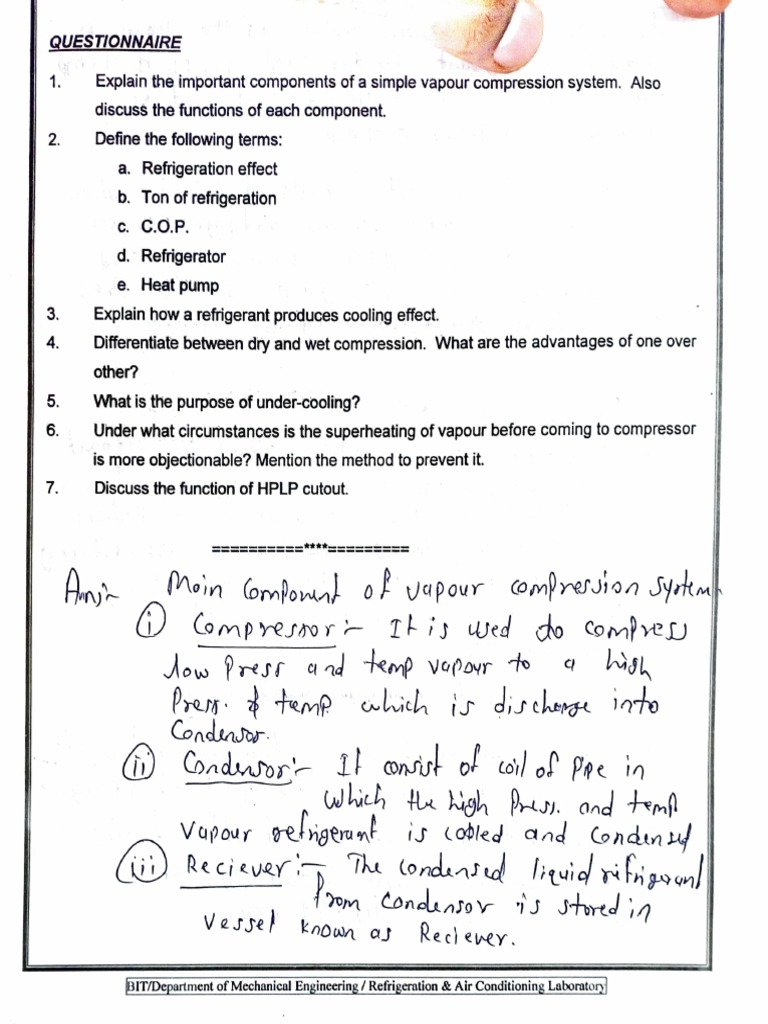 QUESTIONNAIRE
1. Explain the important components of a simple vapour compression system. Also
discuss the functions of each component.
2. Define the following terms:
a. Refrigeration effect
b. Ton of refrigeration
c. C.O.P.
d. Refrigerator
e. Heat pump
3. Explain how a refrigerant produces cooling effect.
4. Differentiate between dry and wet compression. What are the advantages of one over
other?
5. What is the purpose of under-cooling?
6. Under what circumstances is the superheating of vapour before coming to compressor
is more objectionable? Mention the method to prevent it.
7. Discuss the function of HPLP cutout.
==========****=========
Ans:- Main Component of vapour compression system
(i) Compressor:- It is used to compress
low Press and temp vapour to a high
Press. & temp which is discharge into
Condensor.
(ii) Condensor:- It consist of coil of pipe in
which the high Press. and temp
vapour refrigerant is cooled and condensed
(iii) Reciever:- The condensed liquid rifrigerant
from condensor is stored in
vessel known as Reciever.
BIT/Department of Mechanical Engineering / Refrigeration & Air Conditioning Laboratory